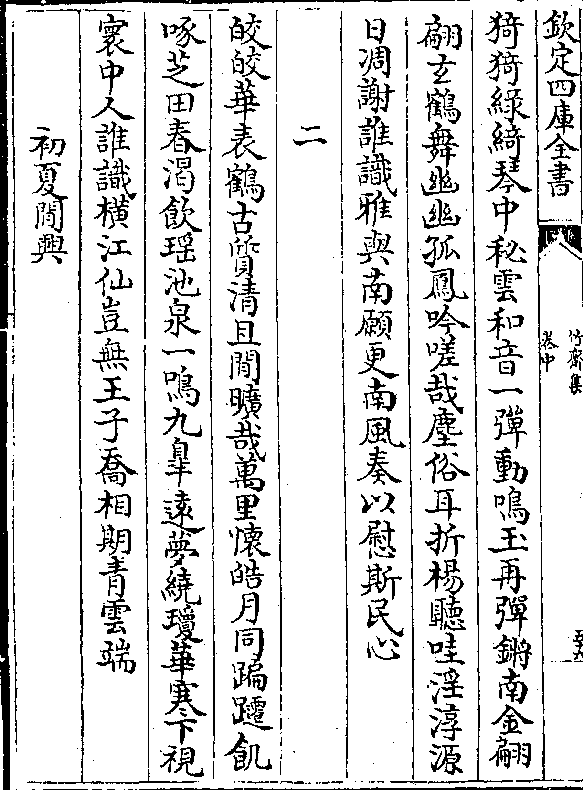 欽定四庫全書
竹齋集
卷中
猗猗綠綺琴中秘雲和音一彈動鳴玉再彈鏘南金翩
翩玄鶴舞幽幽孤鳳吟嗟哉塵俗耳折楊聽哇淫淳源
日凋謝誰識雅與南願更南風奏以慰斯民心
二
皎皎華表鶴古質清且閒曠哉萬里懷皓月同蹁躚飢
啄芝田春渴飲瑶池泉一鳴九臯遠夢繞瓊華寒下視
寰中人誰識橫江仙豈無王子喬相期青雲端
初夏閒興